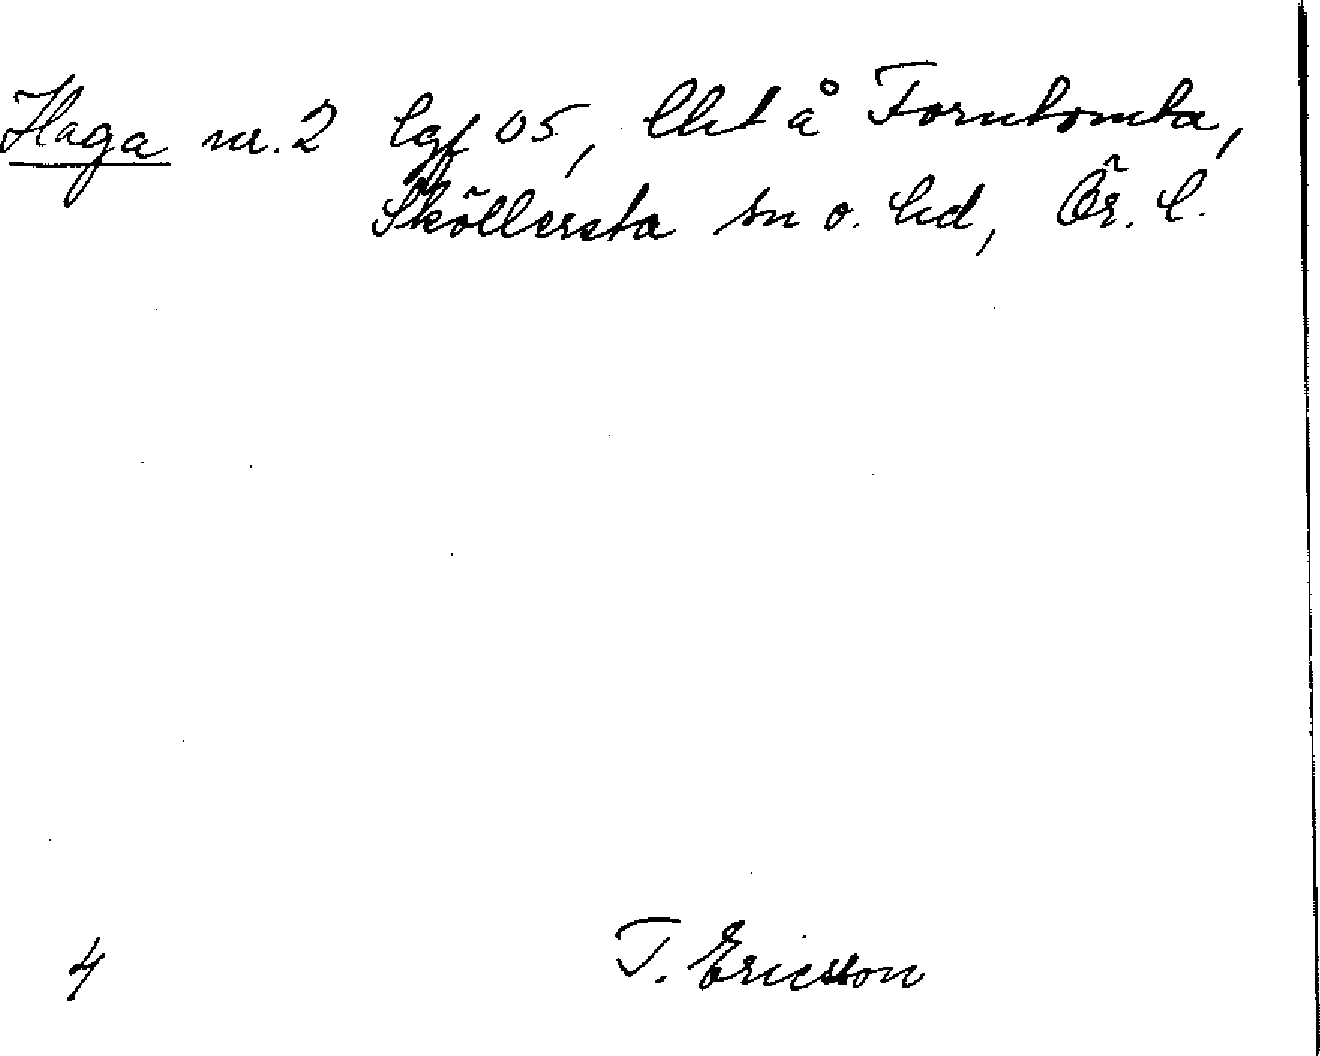 Haga nr. 2 lgf 05, lht å Forntomta,
Sköllersta sn o. hd, Ör. l.
4 T. Ericsson